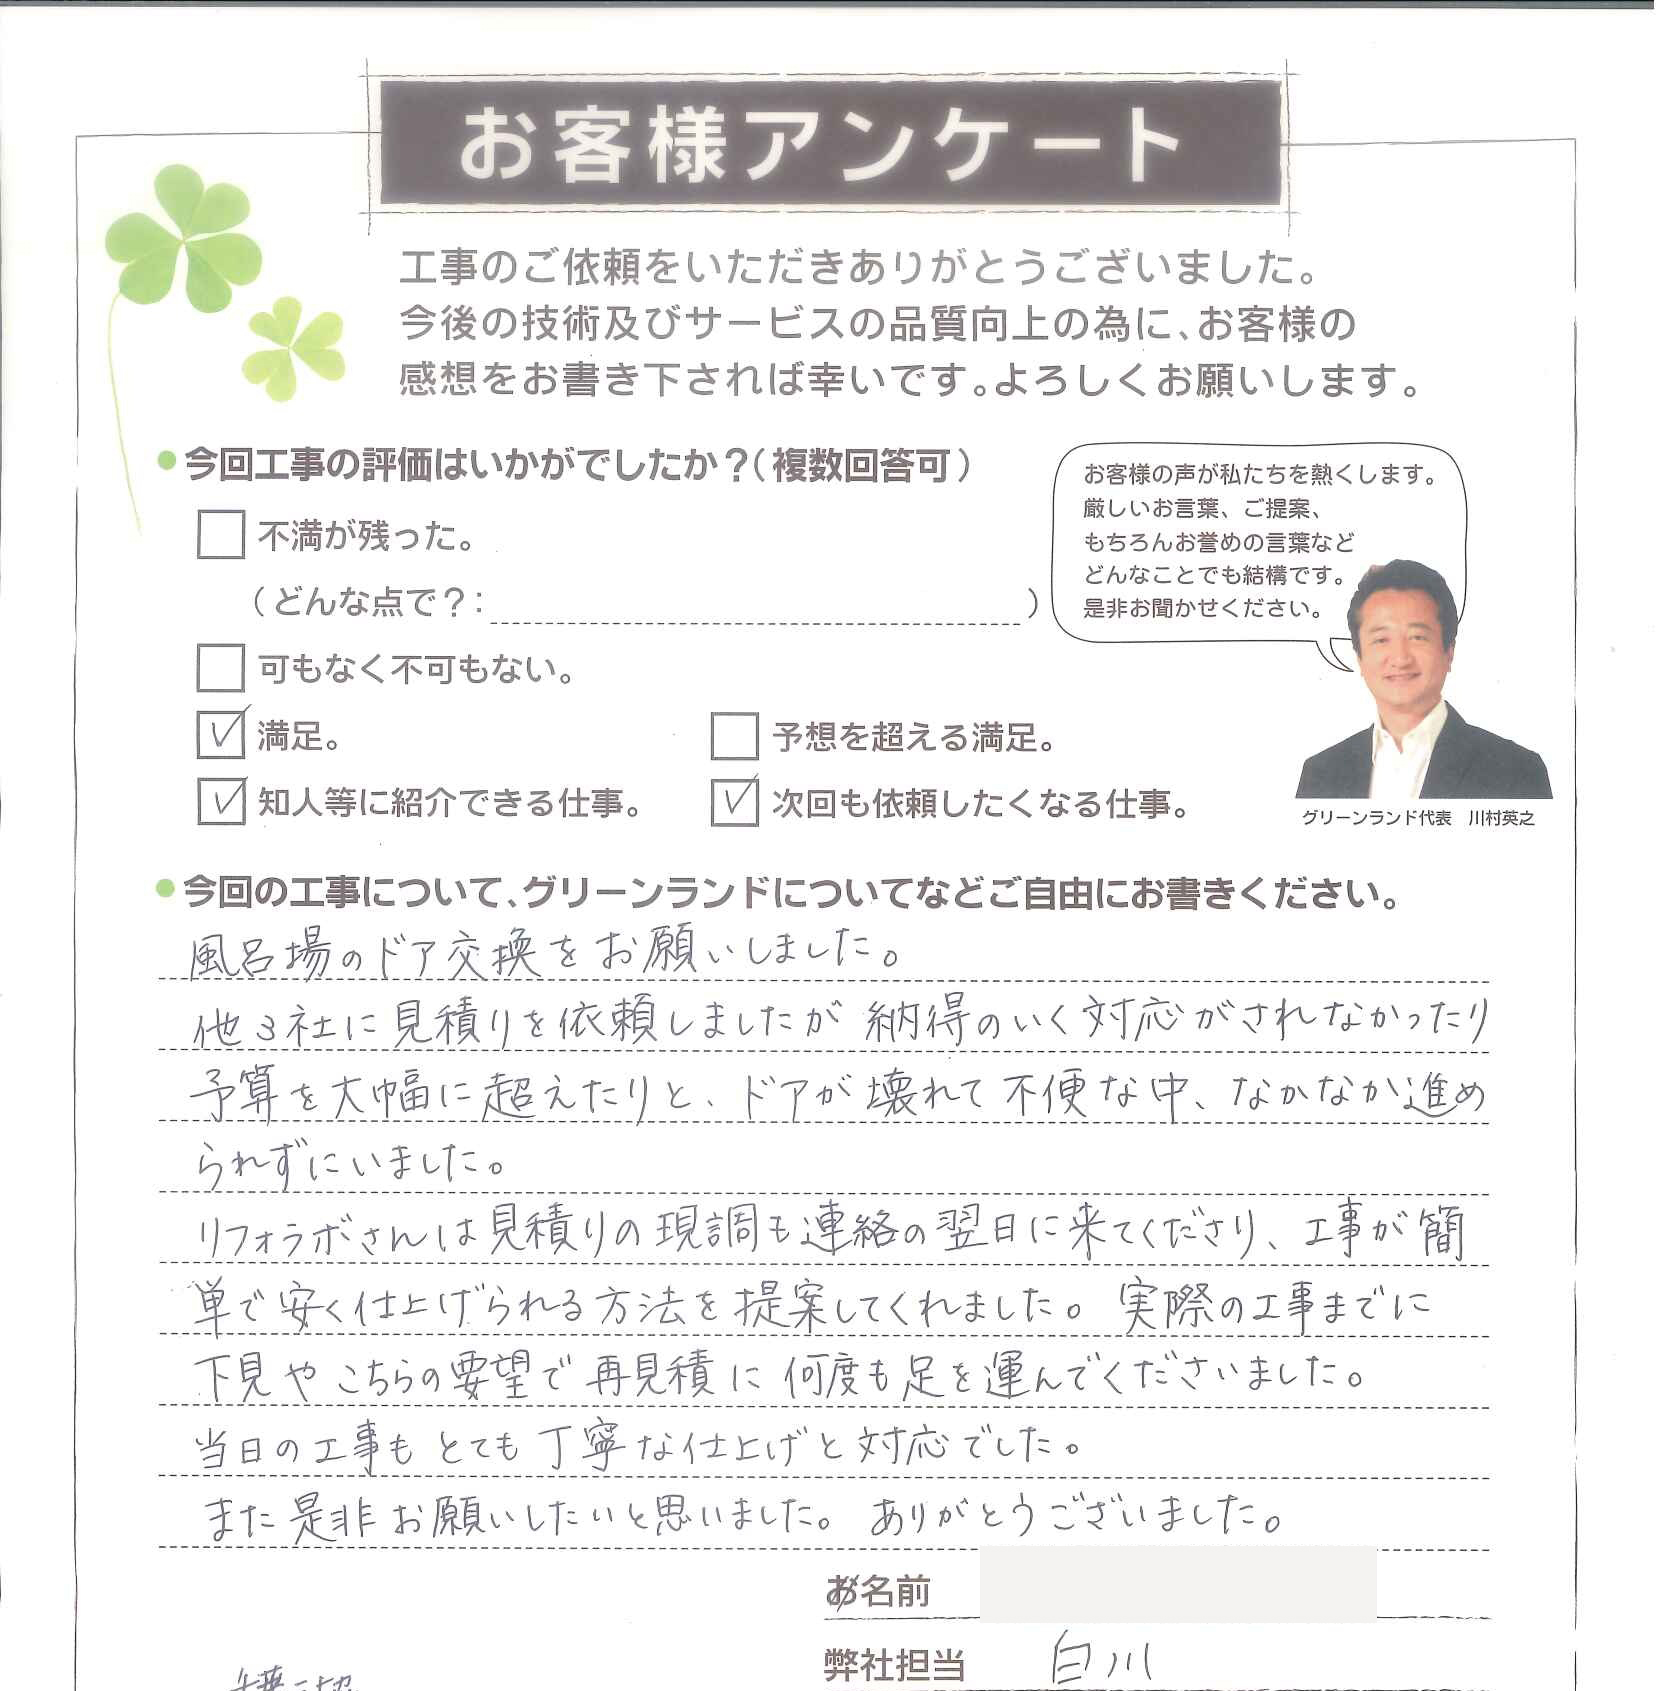 お客様アンケート
工事のご依頼をいただきありがとうございました。
今後の技術及びサービスの品質向上の為に、お客様の
感想をお書き下されば幸いです。よろしくお願いします。
今回工事の評価はいかがでしたか？（複数回答可）
不満が残った。
（どんな点で？：　　　　）
可もなく不可もない。
満足。
予想を超える満足。
知人等に紹介できる仕事。
次回も依頼したくなる仕事。
お客様の声が私たちを熱くします。
厳しいお言葉、ご提案、
もちろんお誉めの言葉など
どんなことでも結構です。
是非お聞かせください。
グリーンランド代表　川村英之
今回の工事について、グリーンランドについてなどご自由にお書きください。
風呂場のドア交換をお願いしました。
他3社に見積りを依頼しましたが 納得のいく対応がされなかったり
予算を大幅に超えたりと、ドアが壊れて不便な中、なかなか進め
られずにいました。
リフォラボさんは見積りの現調も連絡の翌日に来てくださり、工事が簡
単で安く仕上げられる方法を提案してくれました。実際の工事までに
下見やこちらの要望で再見積に何度も足を運んでくださいました。
当日の工事もとても丁寧な仕上げと対応でした。
また是非お願いしたいと思いました。ありがとうございました。
お名前
弊社担当　白川